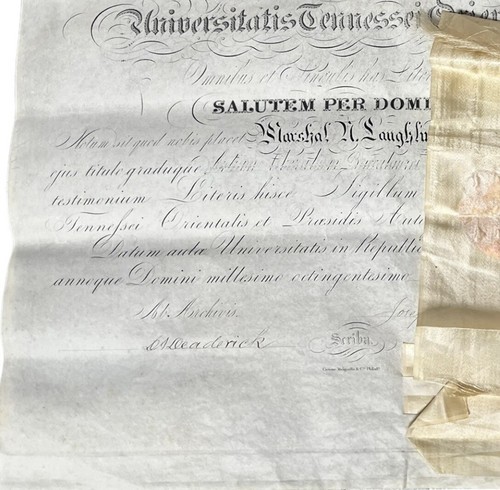 Universitatis Tennessei Orien
Omnibus et Singulis has Liter
SALUTEM PER DOMI
Notum sit quod nobis placet Marshal N. Laughli
ejus titulo graduque
testimonium Literis hisce Sigillum
Tennessei Orientalis et Præsidis Aut
Datum aula Universitatis in Republi
annoque Domini millesimo octingontesimo
Ab Archivis. Jose
Deaderick
Scriba.